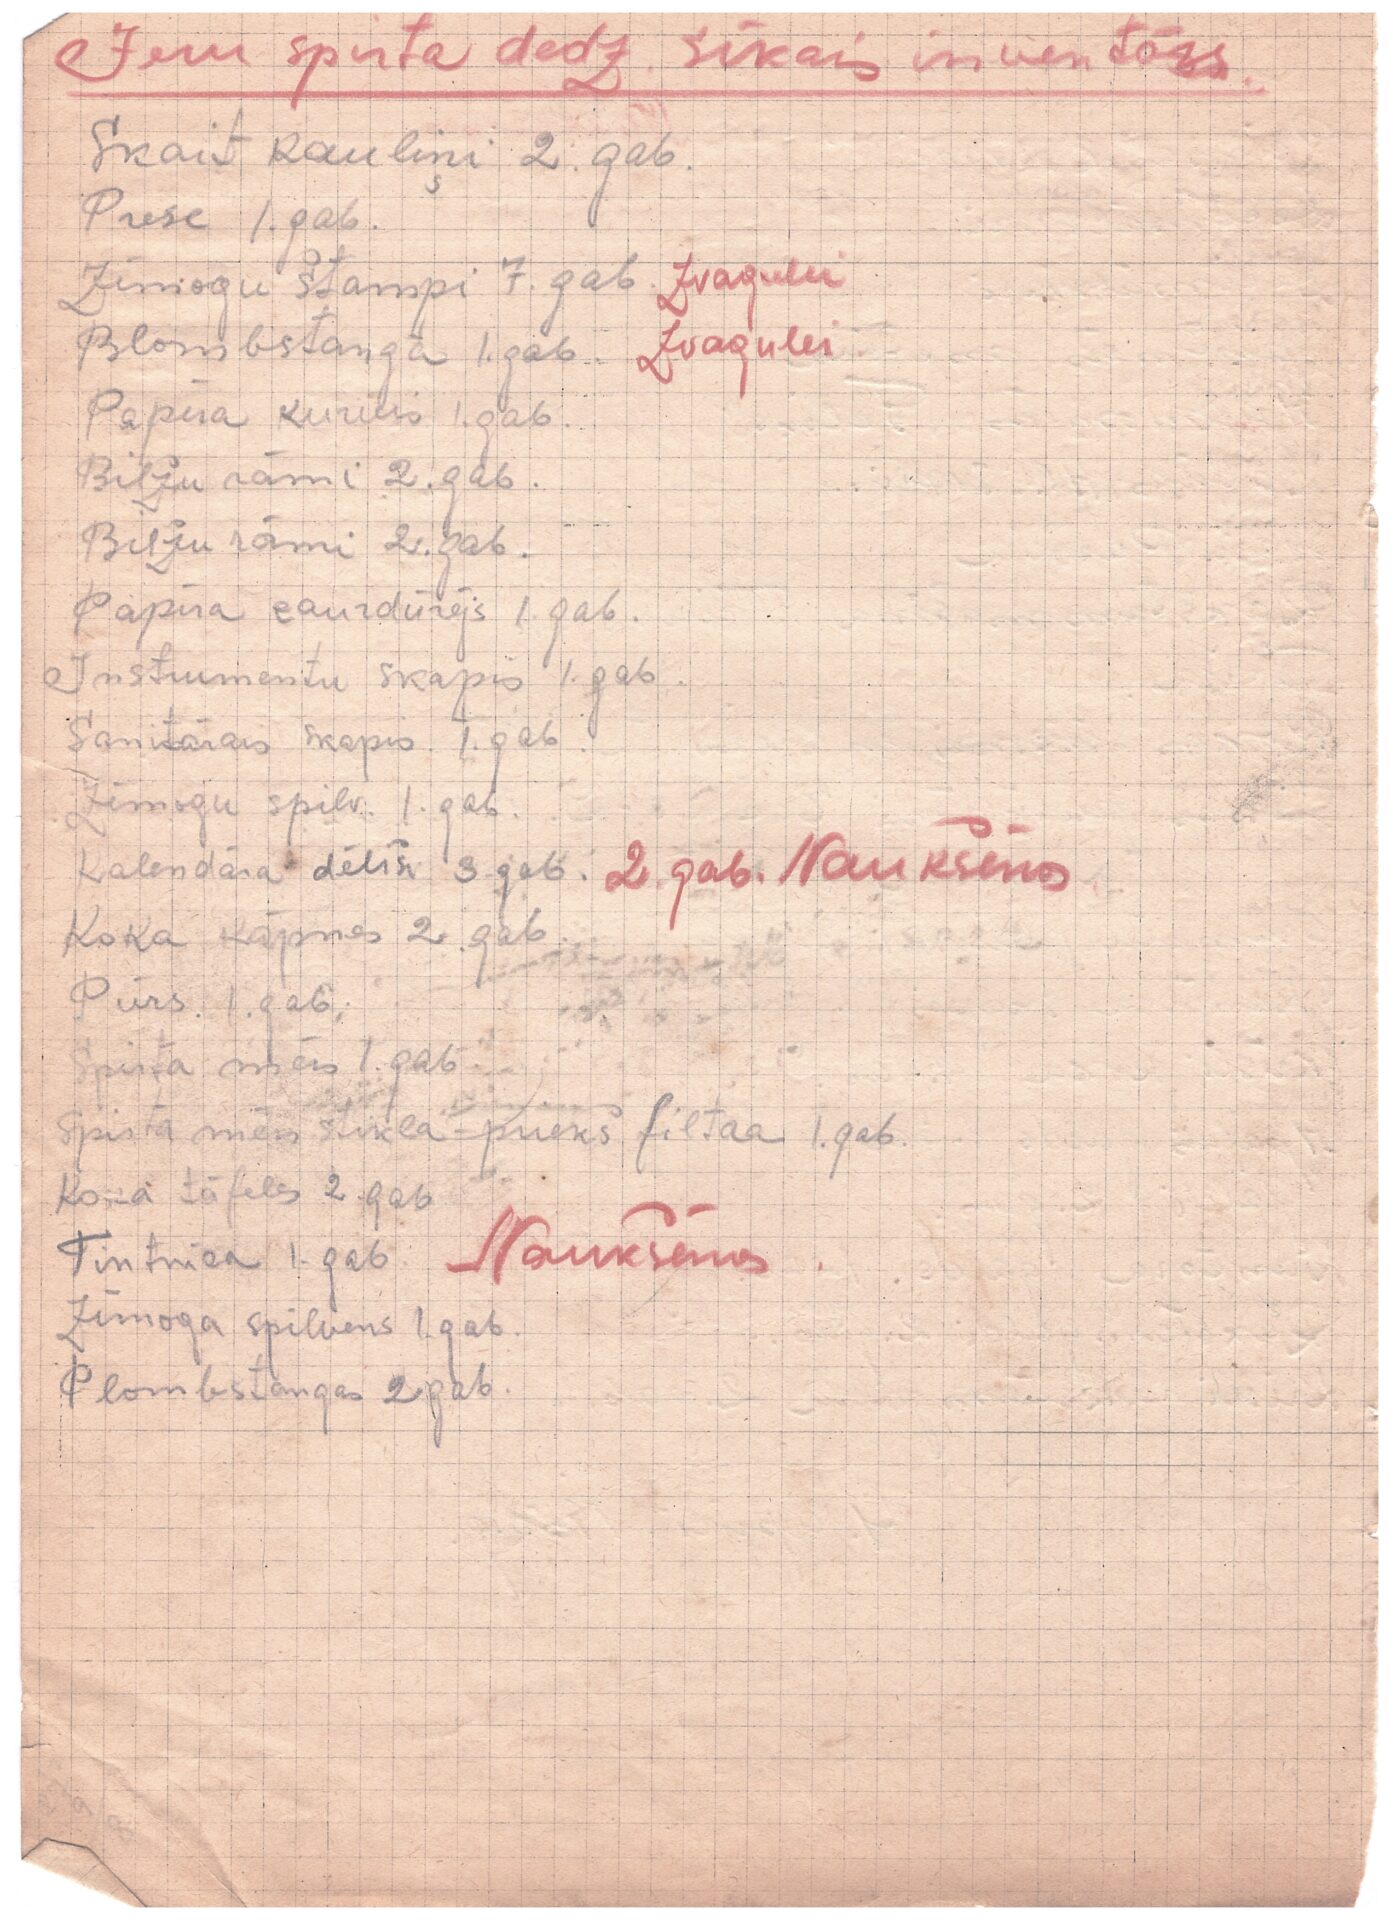 Jeru spirta dedz. sīkais inventārs.
Skait kauliņi 2. gab.
Prese 1. gab.
Zīmogu štampi 7. gab. Zvagulei
Blombstanga 1. gab. Zvagulei
Papīra kurvis 1. gab.
Bilžu rāmi 2. gab.
Bilžu rāmi 2. gab.
Papīra caurdūrējs 1. gab.
Instrumentu skapis 1. gab.
Sanitārais skapis. 1. gab.
Zīmogu spilv. 1. gab.
Kalendāra dēlīši 3 gab. 2. gab. Naukšēnos
Koka kāpnes 2. gab.
Pūrs. 1. gab.
Spirta mērs 1. gab.
Spirta mērs stikla - prieks filtra 1. gab.
Koka tāfeles 2. gab
Tintnica 1. gab. Naukšēnos.
Zīmoga spilvens 1. gab.
Plombstangas 2 gab.